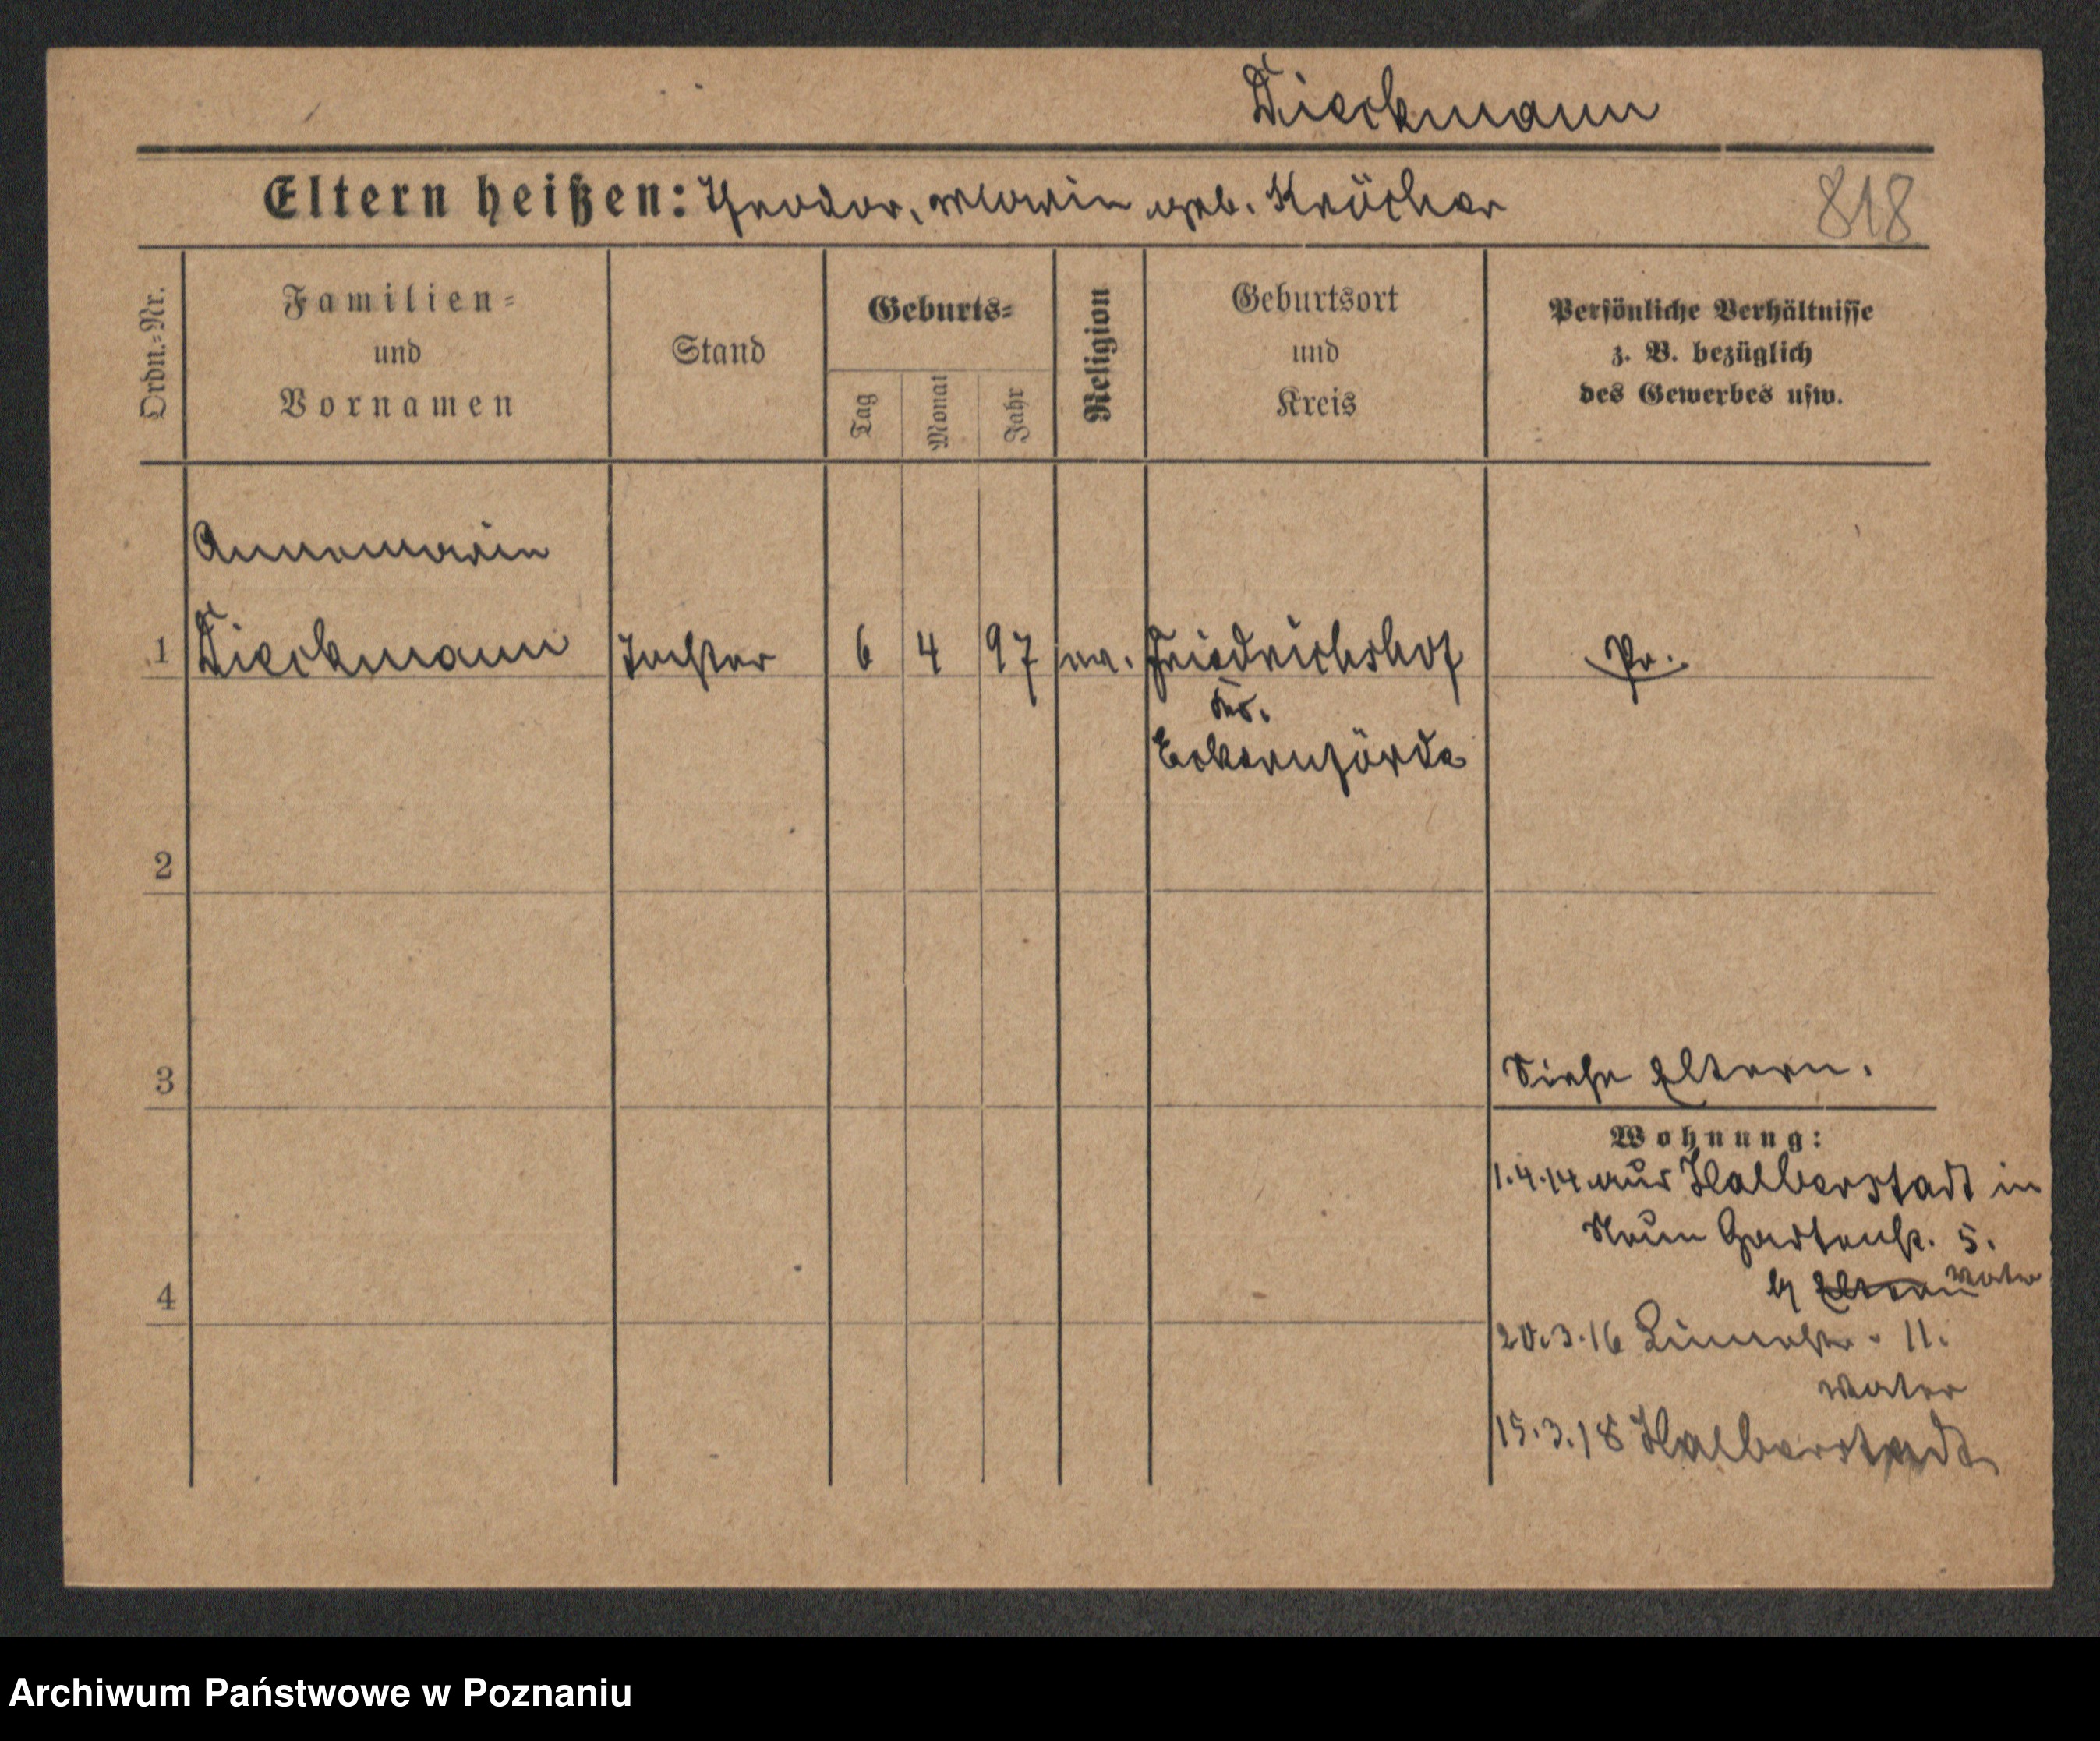 Dieckmann
Eltern heißen: Theodor, Marie geb. Kröcher
818
Ordn.-Nr.
Familien-
und
Vornamen
Stand
Geburts-
Tag
Monat
Jahr
Religion
Geburtsort
und
Kreis
Persönliche Verhältnisse
z. B. bezüglich
des Gewerbes usw.
Annemarie
1 Dieckmann Tochter 6 4 97 ev. Friedrichshof Pr.
Krs.
Eckernförde
2
3
Siehe Eltern.
Wohnung:
1.4.14 aus Halberstadt in
Neue Gartenstr. 5.
b/ Eltern Vater
4
20.3.16 11.
Vater
15.3.18 Halberstadt
Archiwum Państwowe w Poznaniu